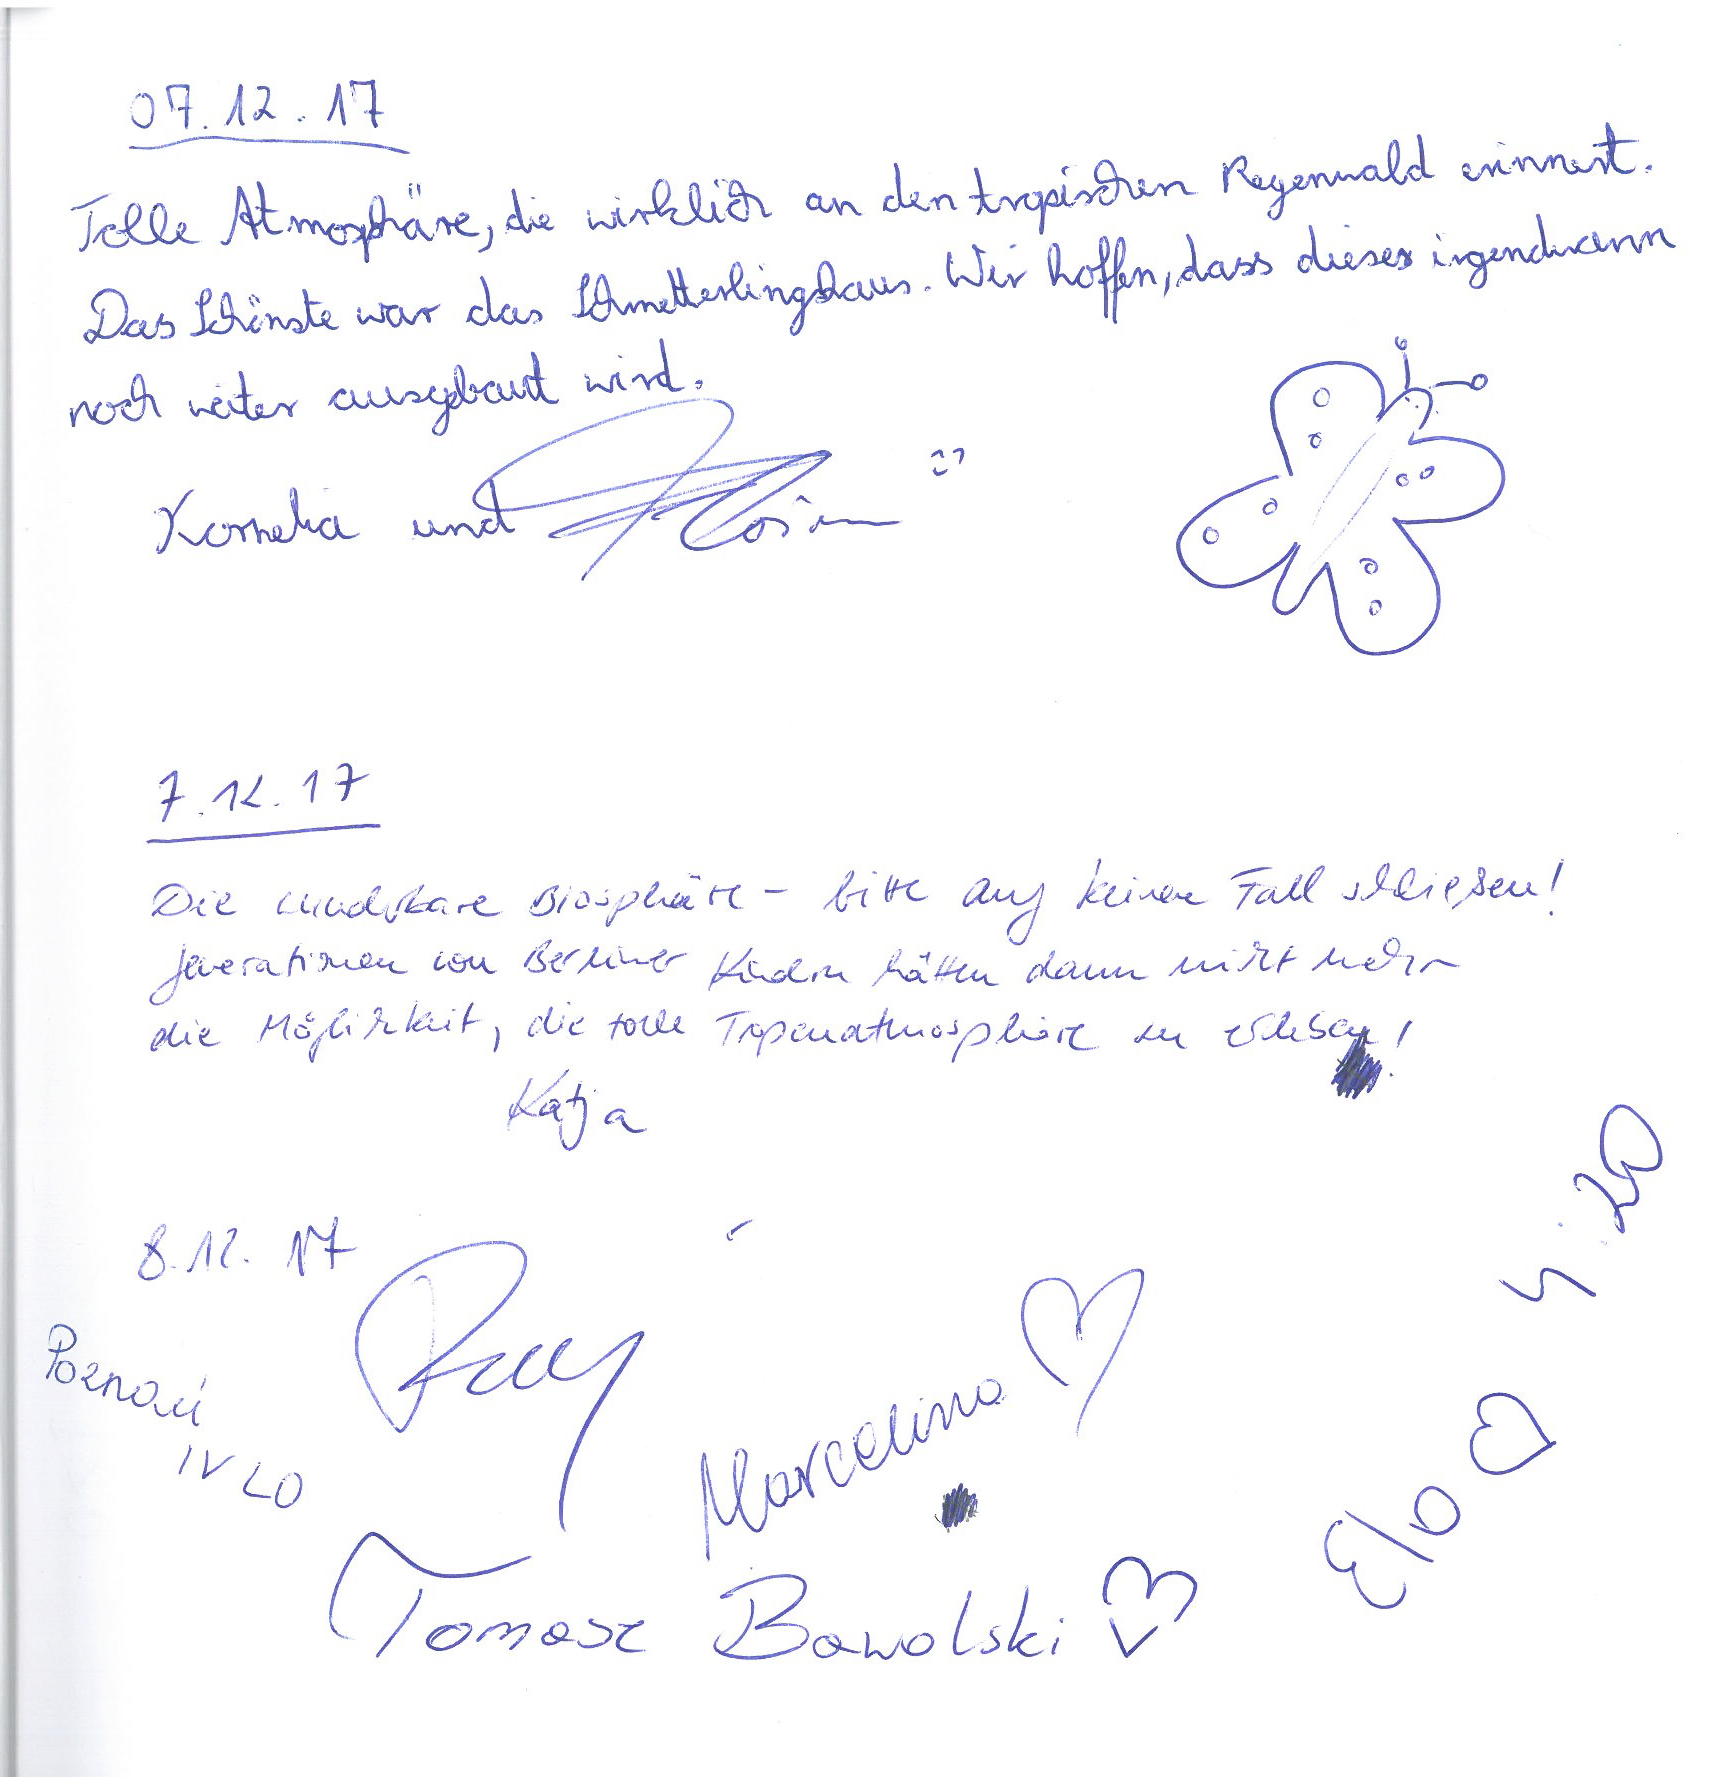 07.12.17
Tolle Atmosphäre, die wirklich an den tropischen Regenwald erinnert.
Das Schönste war das Schmetterlingshaus. Wir hoffen, dass dieses irgendwann
noch weiter ausgebaut wird.
Kornelia und
7.12.17
Die wunderbare Biosphäre - bitte auf keinen Fall schließen!
Generationen von Berliner Kindern hätten dann nicht mehr
die Möglichkeit, die tolle Tropenatmosphäre zu erleben!
Katja
8.12.17
Poznań
IV LO
Marcelina
Tomasz Bawolski
Elo
4:20